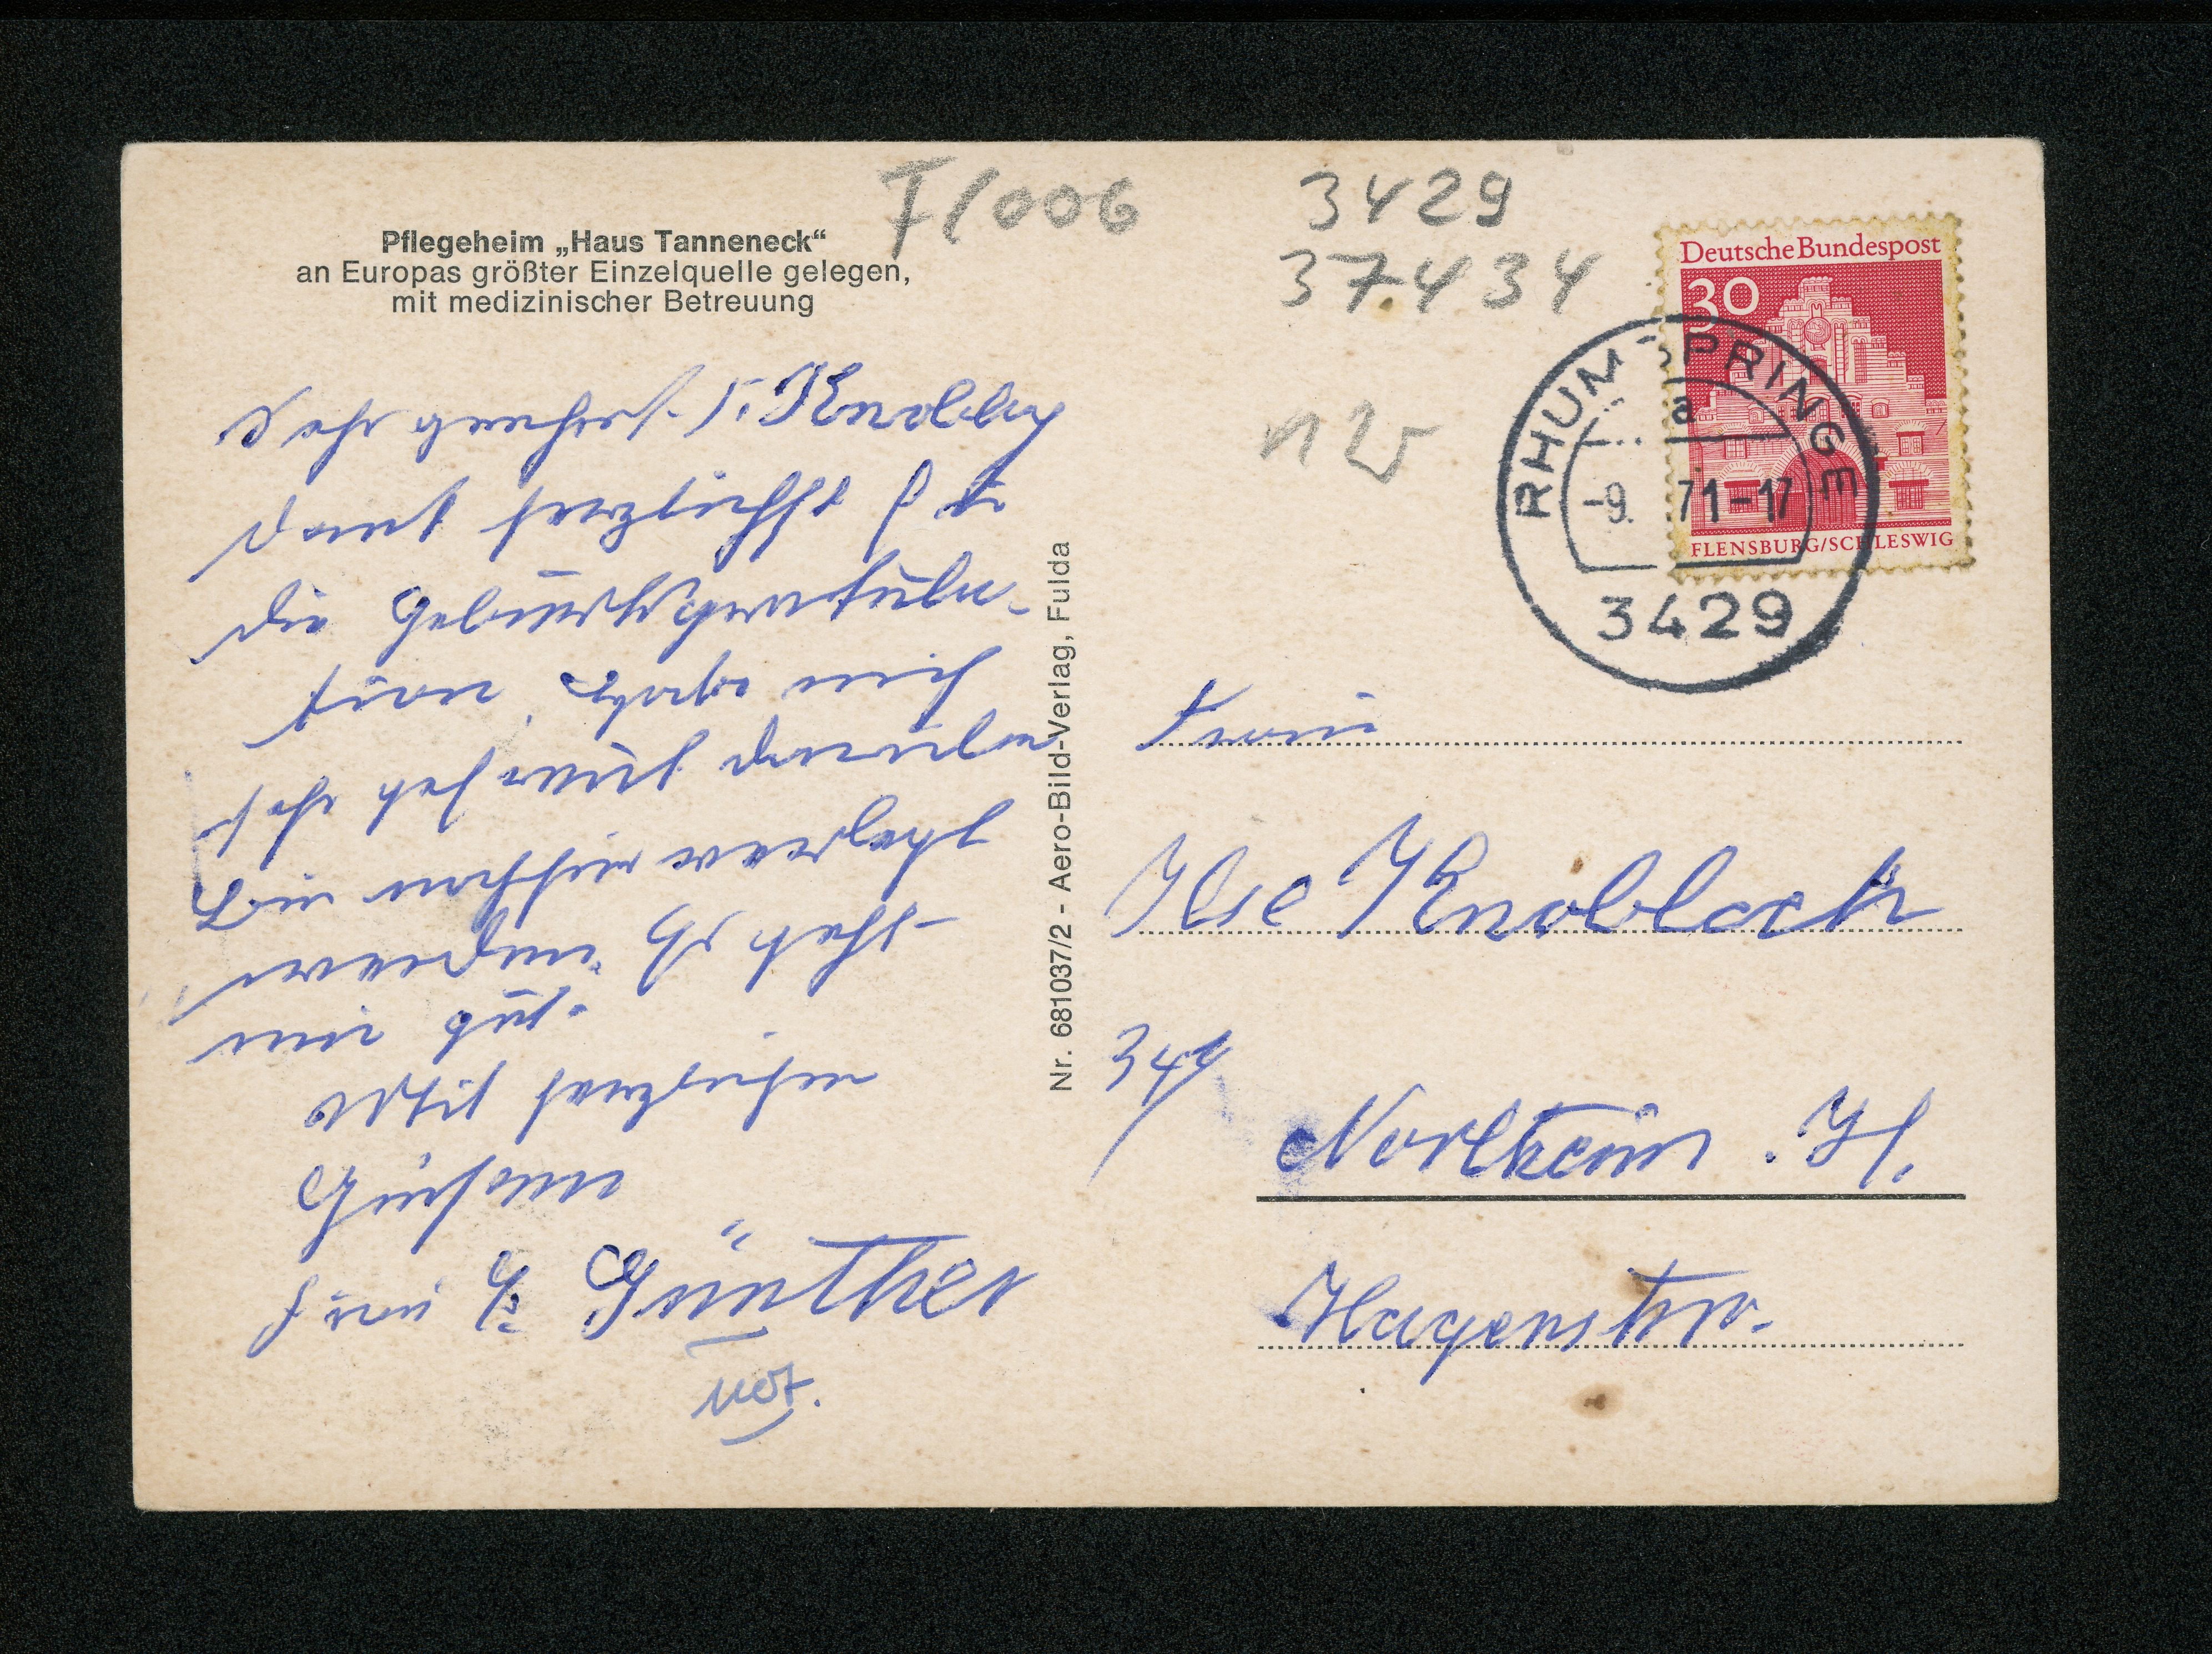 Pflegeheim „Haus Tanneneck“
an Europas größter Einzelquelle gelegen,
mit medizinischer Betreuung
F/006
3429
37434
Deutsche Bundespost
30
FLENSBURG/SCHLESWIG
RHUMSPRINGE
a
-9. 71-17
3429
Sehr geehrte Fr. Knobloch
Danke herzlichst für
die Geburtstagsgratula-
tion, habe mich
sehr gefreut darüber
Bin nach hier verlegt
worden. Es geht
mir gut.
Mit herzlichen
Grüßen
Frau Günther
Nr. 681037/2 - Aero-Bild-Verlag, Fulda
Frau
Ilse Knobloch
341
Northeim. H.
Hagenstr.